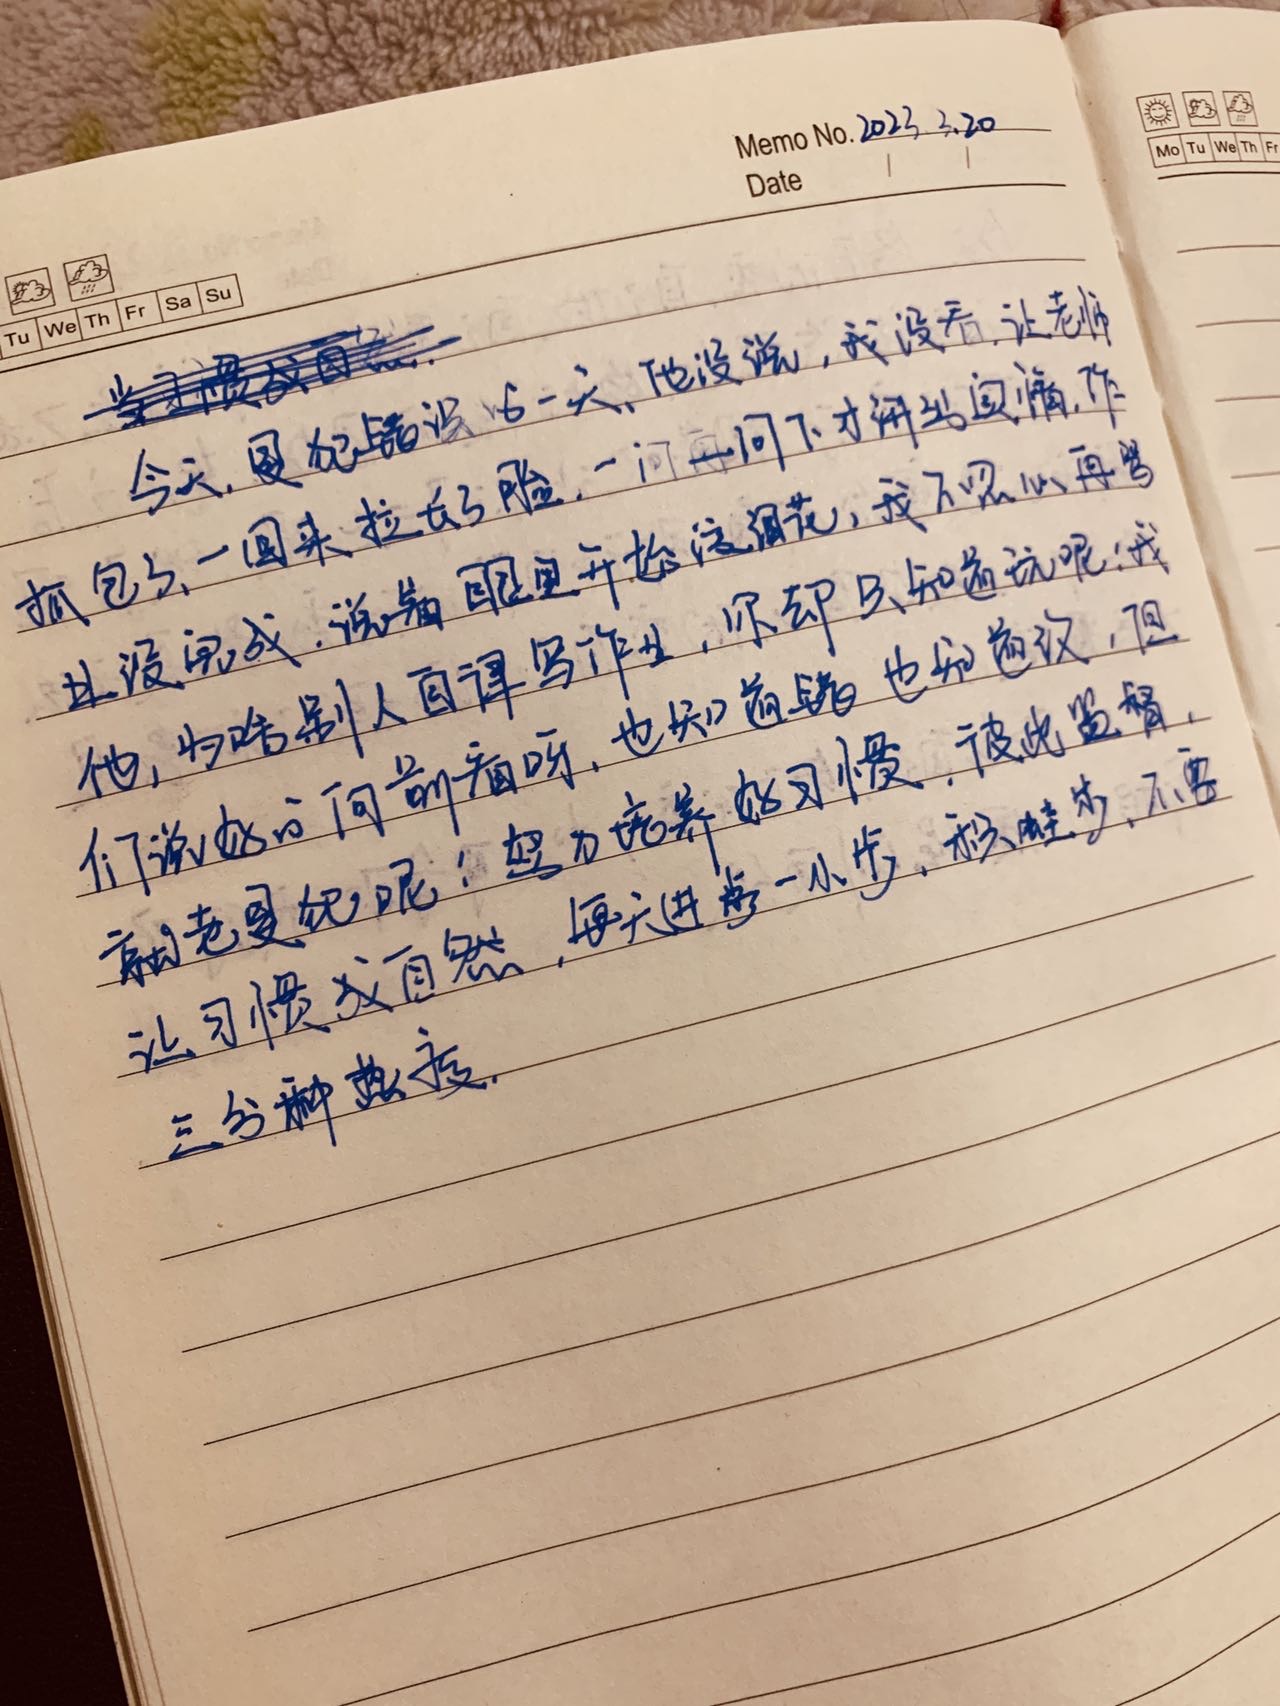 Memo No. 2023 3.20
Date
Mo Tu We Th Fr
Tu We Th Fr Sa Su
当习惯成自然.
今天,是犯错误的一天,他没说,我没看,让老师
抓包了,一回来拉长了脸,一问再问下才讲出实情,作
业没完成,说着眼里开始泛泪花,我不忍心再骂
他,为啥别人自课写作业,你却只知道玩呢!我
们说好的向前看呀,也知道错也知道改,但
就老是犯呢!努力培养好习惯,彼此监督,
让习惯成自然,每天进步一小步,积跬步,不要
三分种热度.